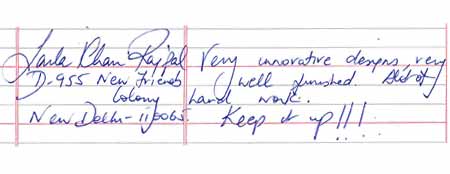 Khan Rajpal
D-955 New Friends
Colony
New Delhi - 110065.
Very innovative designs, very
well furnished. A lot of
hand work.
Keep it up!!!